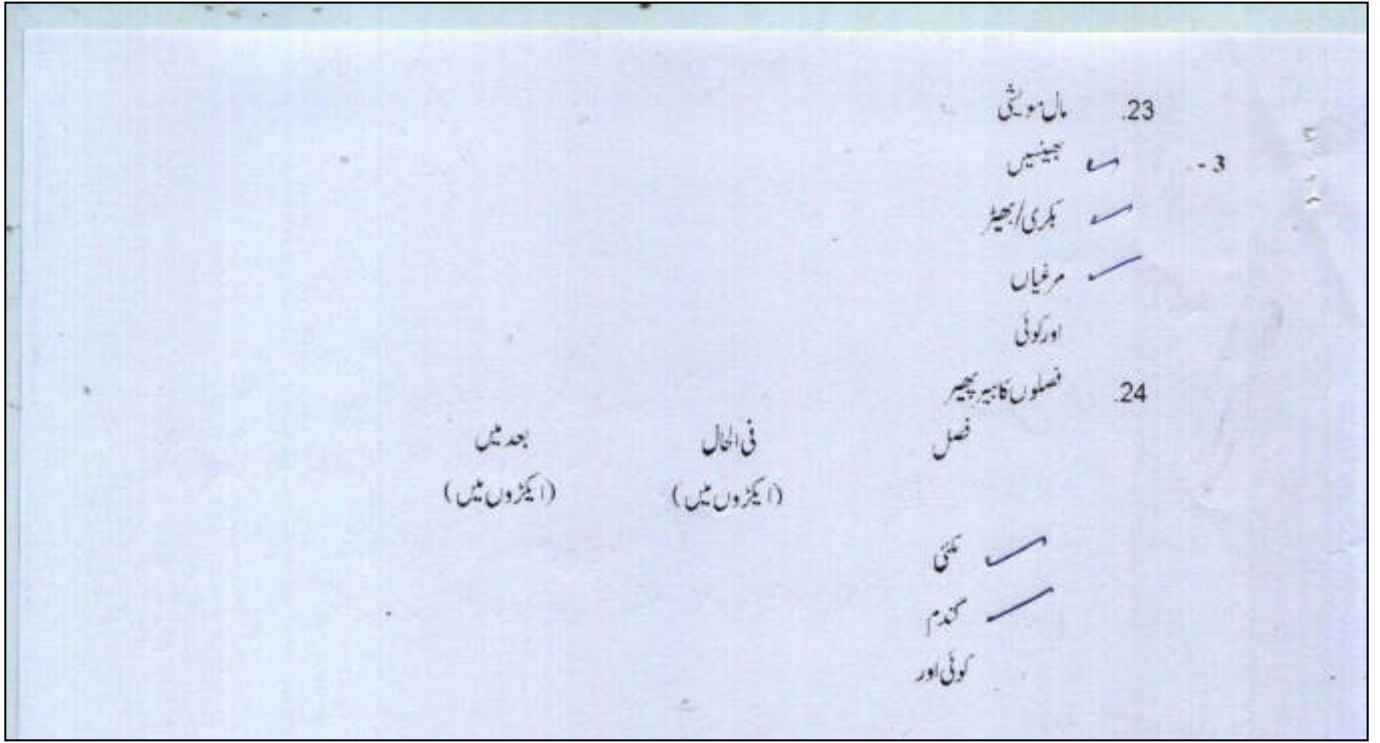 23. مال مویشی
3 - بھینسیں
بکری/بھیڑ
مرغیاں
اورکوئی
24. فصلوں کا ہیر پھیر
فصل فی الحال بعد میں
(ایکڑوں میں) (ایکڑوں میں)
مکئی
گندم
کوئی اور